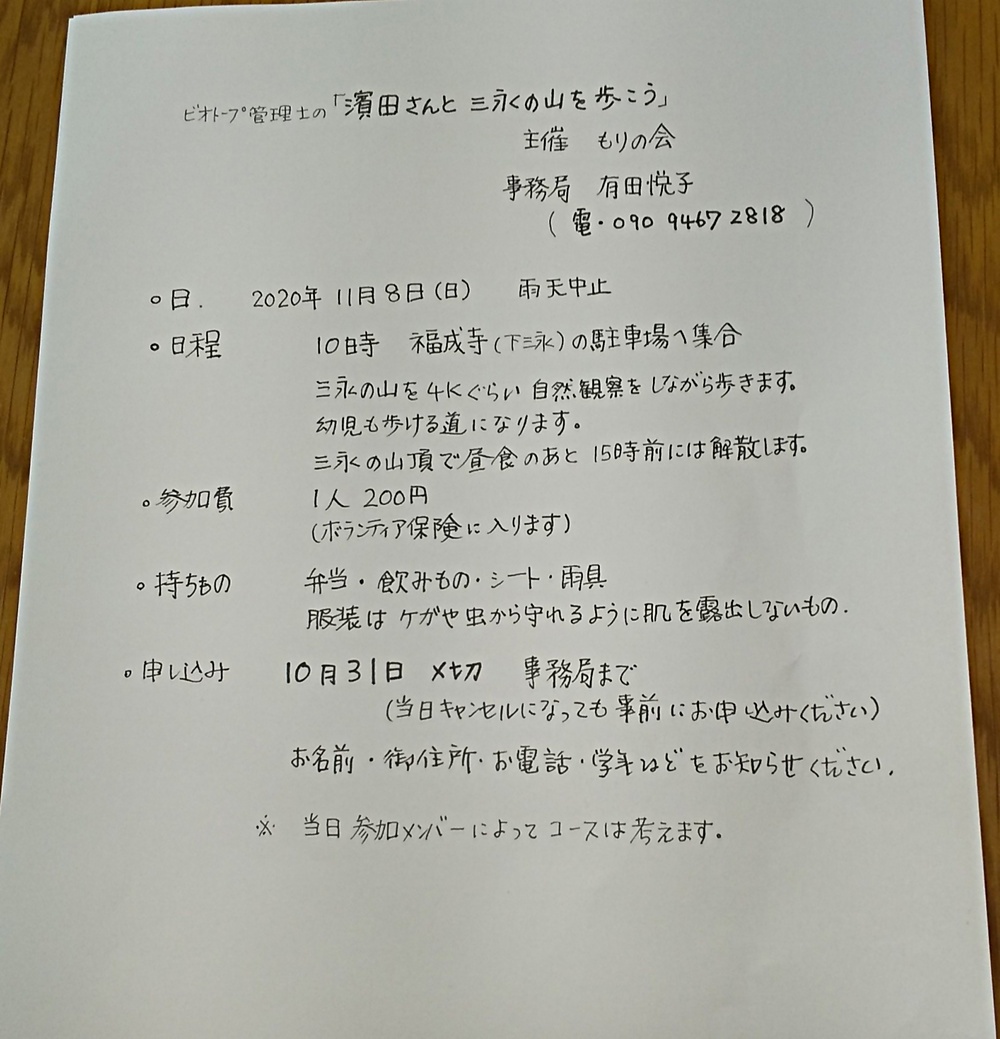 ビオトープ管理士の「濱田さんと 三永の山を歩こう」
主催 もりの会
事務局 有田悦子
(電・090 9467 2818)
○日. 2020年 11月8日(日) 雨天中止
○日程 10時 福成寺(下三永)の駐車場へ集合
三永の山を4Kぐらい 自然観察をしながら歩きます。
幼児も歩ける道になります。
三永の山頂で昼食のあと 15時前には解散します。
○参加費 1人 200円
(ボランティア保険に入ります)
○持ちもの 弁当・飲みもの・シート・雨具
服装は ケガや虫から守れるように肌を露出しないもの.
○申し込み 10月31日 〆切 事務局まで
(当日キャンセルになっても事前にお申し込みください)
お名前・御住所・お電話・学年などをお知らせください.
※ 当日参加メンバーによってコースは考えます。